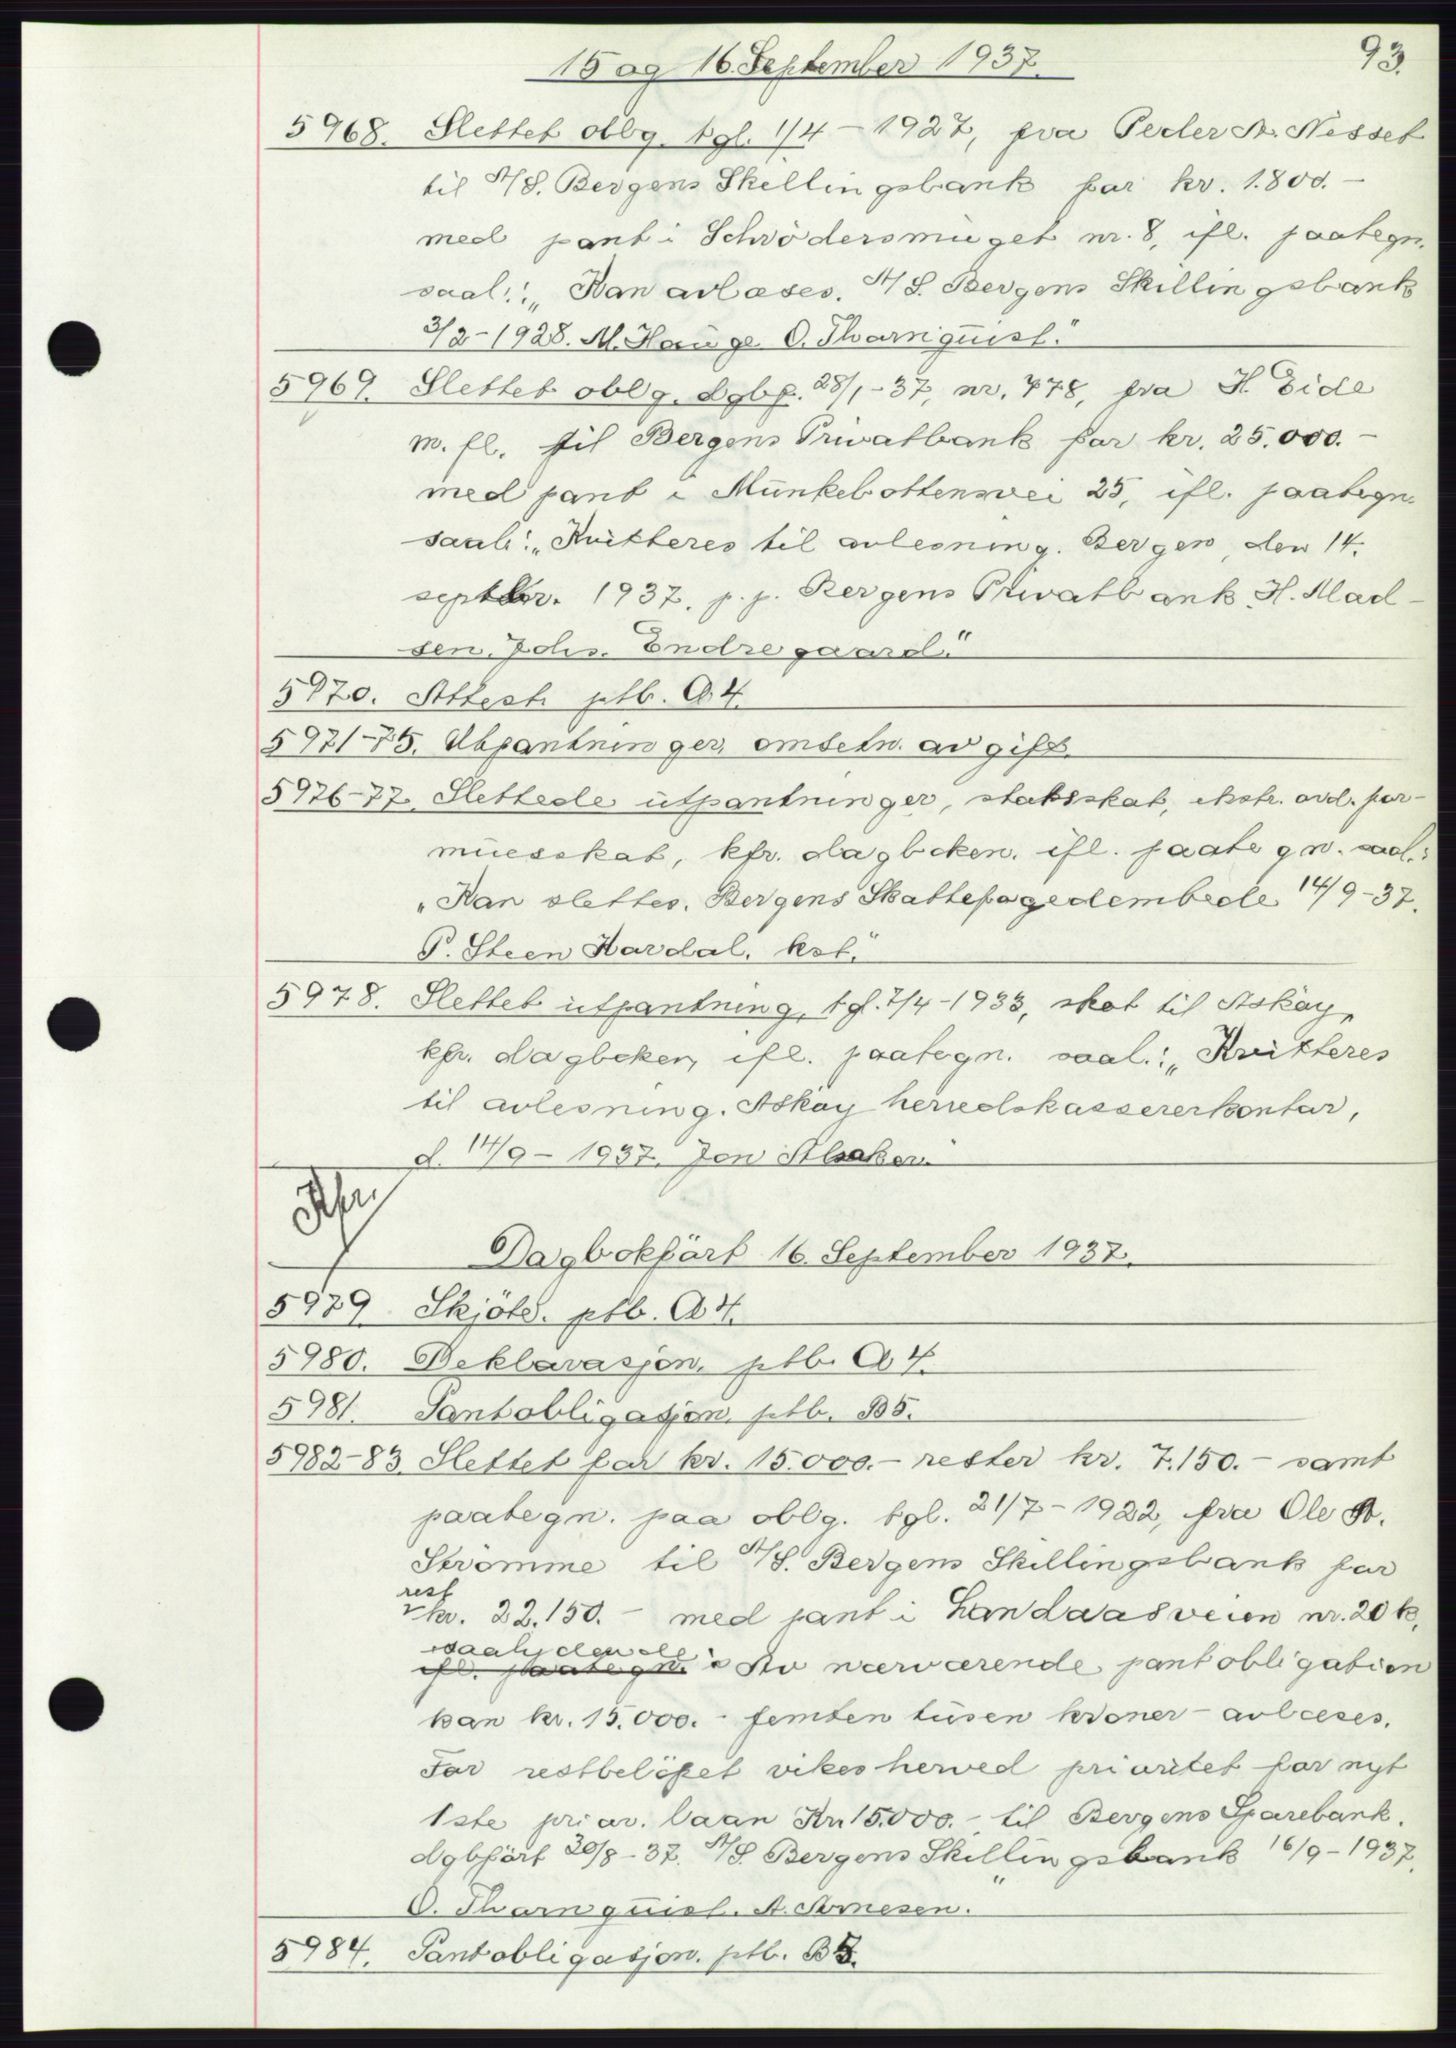 93.
15 og 16. September 1937.
5968. Slettet oblg. tgl. 1/4 - 1927, fra Peder A. Nesset
til A/S. Bergens Skillingsbank for kr. 1.800.-
med pant i Schrödersmuget nr. 8, ifl. paategn.
saal.: „Kan avlæses. A/S. Bergens Skillingsbank
3/2 - 1928. M. Hauge O. Thornquist."
5969. Slettet oblg. dgbf. 28/1 - 37, nr. 778, fra H. Eide
m. fl. til Bergens Privatbank for kr. 25.000.-
med pant i Munkebottensvei 25, ifl. paategn.
saal.: „Kvitteres til avlesning. Bergen, den 14.
septbr. 1937. p. p. Bergens Privatbank. H. Mad-
sen. Johs. Endregaard."
5970. Attest ptb. A4.
5971-75. Utpantninger, omsetn. avgift.
5976-77. Slettede utpantninger, statsskat, ekstr. ord. for-
muesskat, kfr. dagboken. ifl. paategn. saal.:
„Kan slettes. Bergens Skattefogedembede 14/9 - 37.
P. Steen Hardal. kst."
5978. Slettet utpantning, tgl. 7/4 - 1933, skat til Asköy,
kfr. dagboken, ifl. paategn. saal.: „Kvitteres
til avlesning. Asköy herredskassererkontor,
d. 14/9 - 1937. Jon Alsaker."
Kfr.
Dagbokfört 16. September 1937.
5979. Skjöte. ptb. A4.
5980. Deklarasjon, ptb. A4.
5981. Pantobligasjon, ptb. B5.
5982-83. Slettet for kr. 15.000.- rester kr. 7.150.- samt
paategn. paa oblg. tgl. 21/7 - 1922, fra Ole A.
Strömme til A/S. Bergens Skillingsbank for
rest
kr. 22.150.- med pant i Landaasveien nr. 20 k,
saalydende
ifl. paategn. „Av nærværende pantobligation
kan kr. 15.000.- femten tusen kroner - avlæses.
For restbelöpet vikes herved prioritet for nyt
1ste prior. laan Kr. 15.000.- til Bergens Sparebank.
dgbfört 30/8 - 37. A/S. Bergens Skillingsbank 16/9 - 1937.
O. Thornquist. A. Arnesen."
5984. Pantobligasjon. ptb. B5.